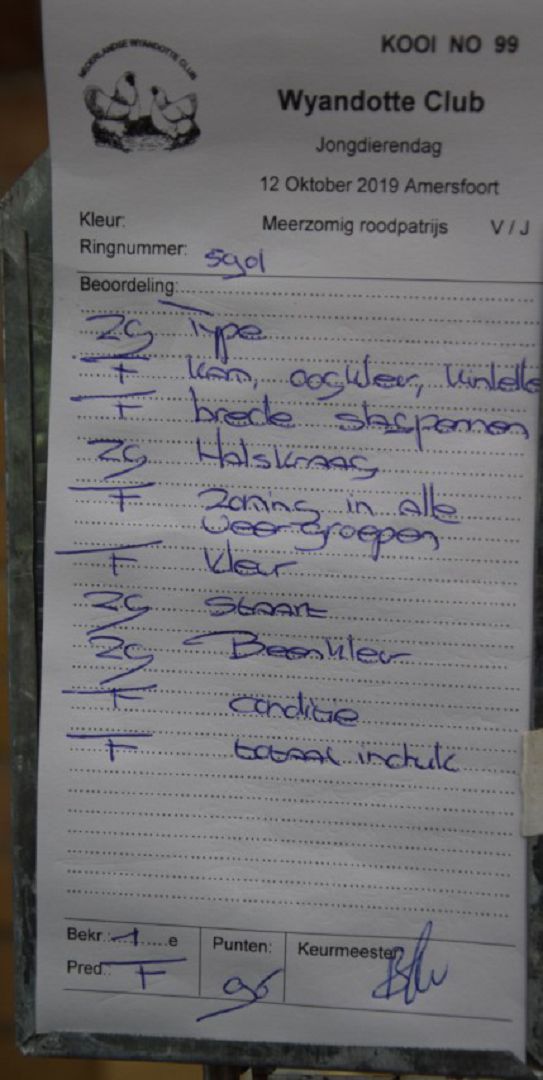 KOOI NO 99
NEDERLANDSE WYANDOTTE CLUB
Wyandotte Club
Jongdierendag
12 Oktober 2019 Amersfoort
Kleur: Meerzomig roodpatrijs V / J
Ringnummer: 5901
Beoordeling:
ZG Type
F kam, oogkleur, kinlelle
F brede stagpennen
ZG Halskraag
F Zoming in alle
veergroepen
F kleur
ZG staart
ZG Beenkleur
F conditie
F totaal indruk
Bekr.: 1 e Punten: Keurmeester
Pred.: F 96